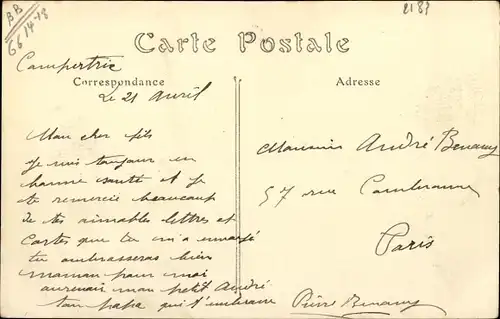 BB
66 14-18
2187
Carte Postale
Correspondance
Adresse
Le 21 avril
Mon cher fils
Je suis toujour en
bonne santé et je
te remercie beaucoup
de tes aimables lettres et
cartes que tu m'a envoyé
tu embrasseras bien
maman pour moi
aurevoir mon petit André
ton papa qui t'embrasse
Pierre Benamy
Monsieur André Benamy
57 rue
Paris